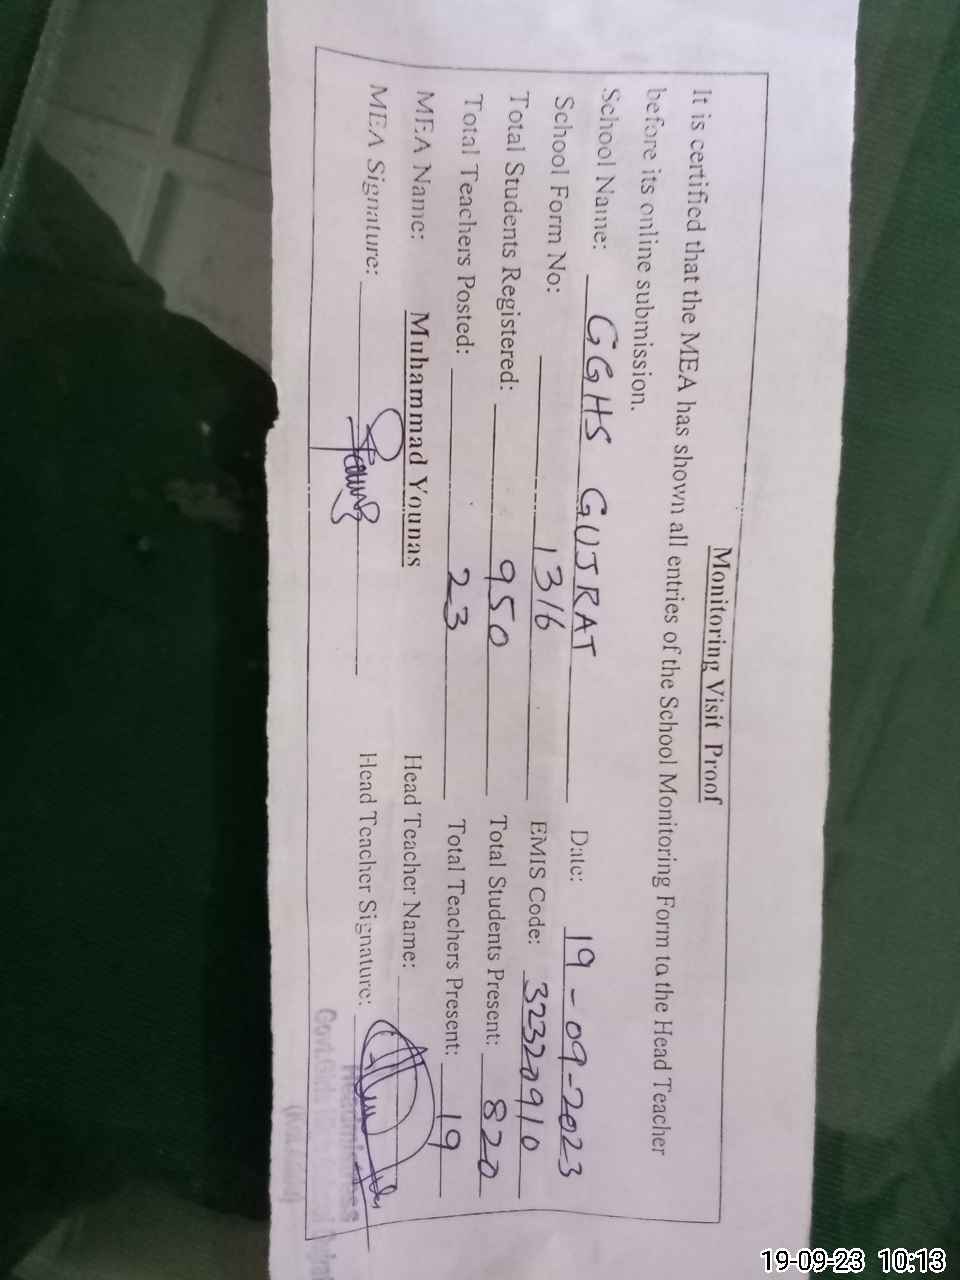 Monitoring Visit Proof
It is certified that the MEA has shown all entries of the School Monitoring Form to the Head Teacher
before its online submission.
School Name: GGHS GUJRAT Date: 19-09-2023
School Form No: 1316 EMIS Code: 32320910
Total Students Registered: 950 Total Students Present: 820
Total Teachers Posted: 23 Total Teachers Present: 19
MEA Name: Muhammad Younas Head Teacher Name:
MEA Signature: Head Teacher Signature:
19-09-23 10:13